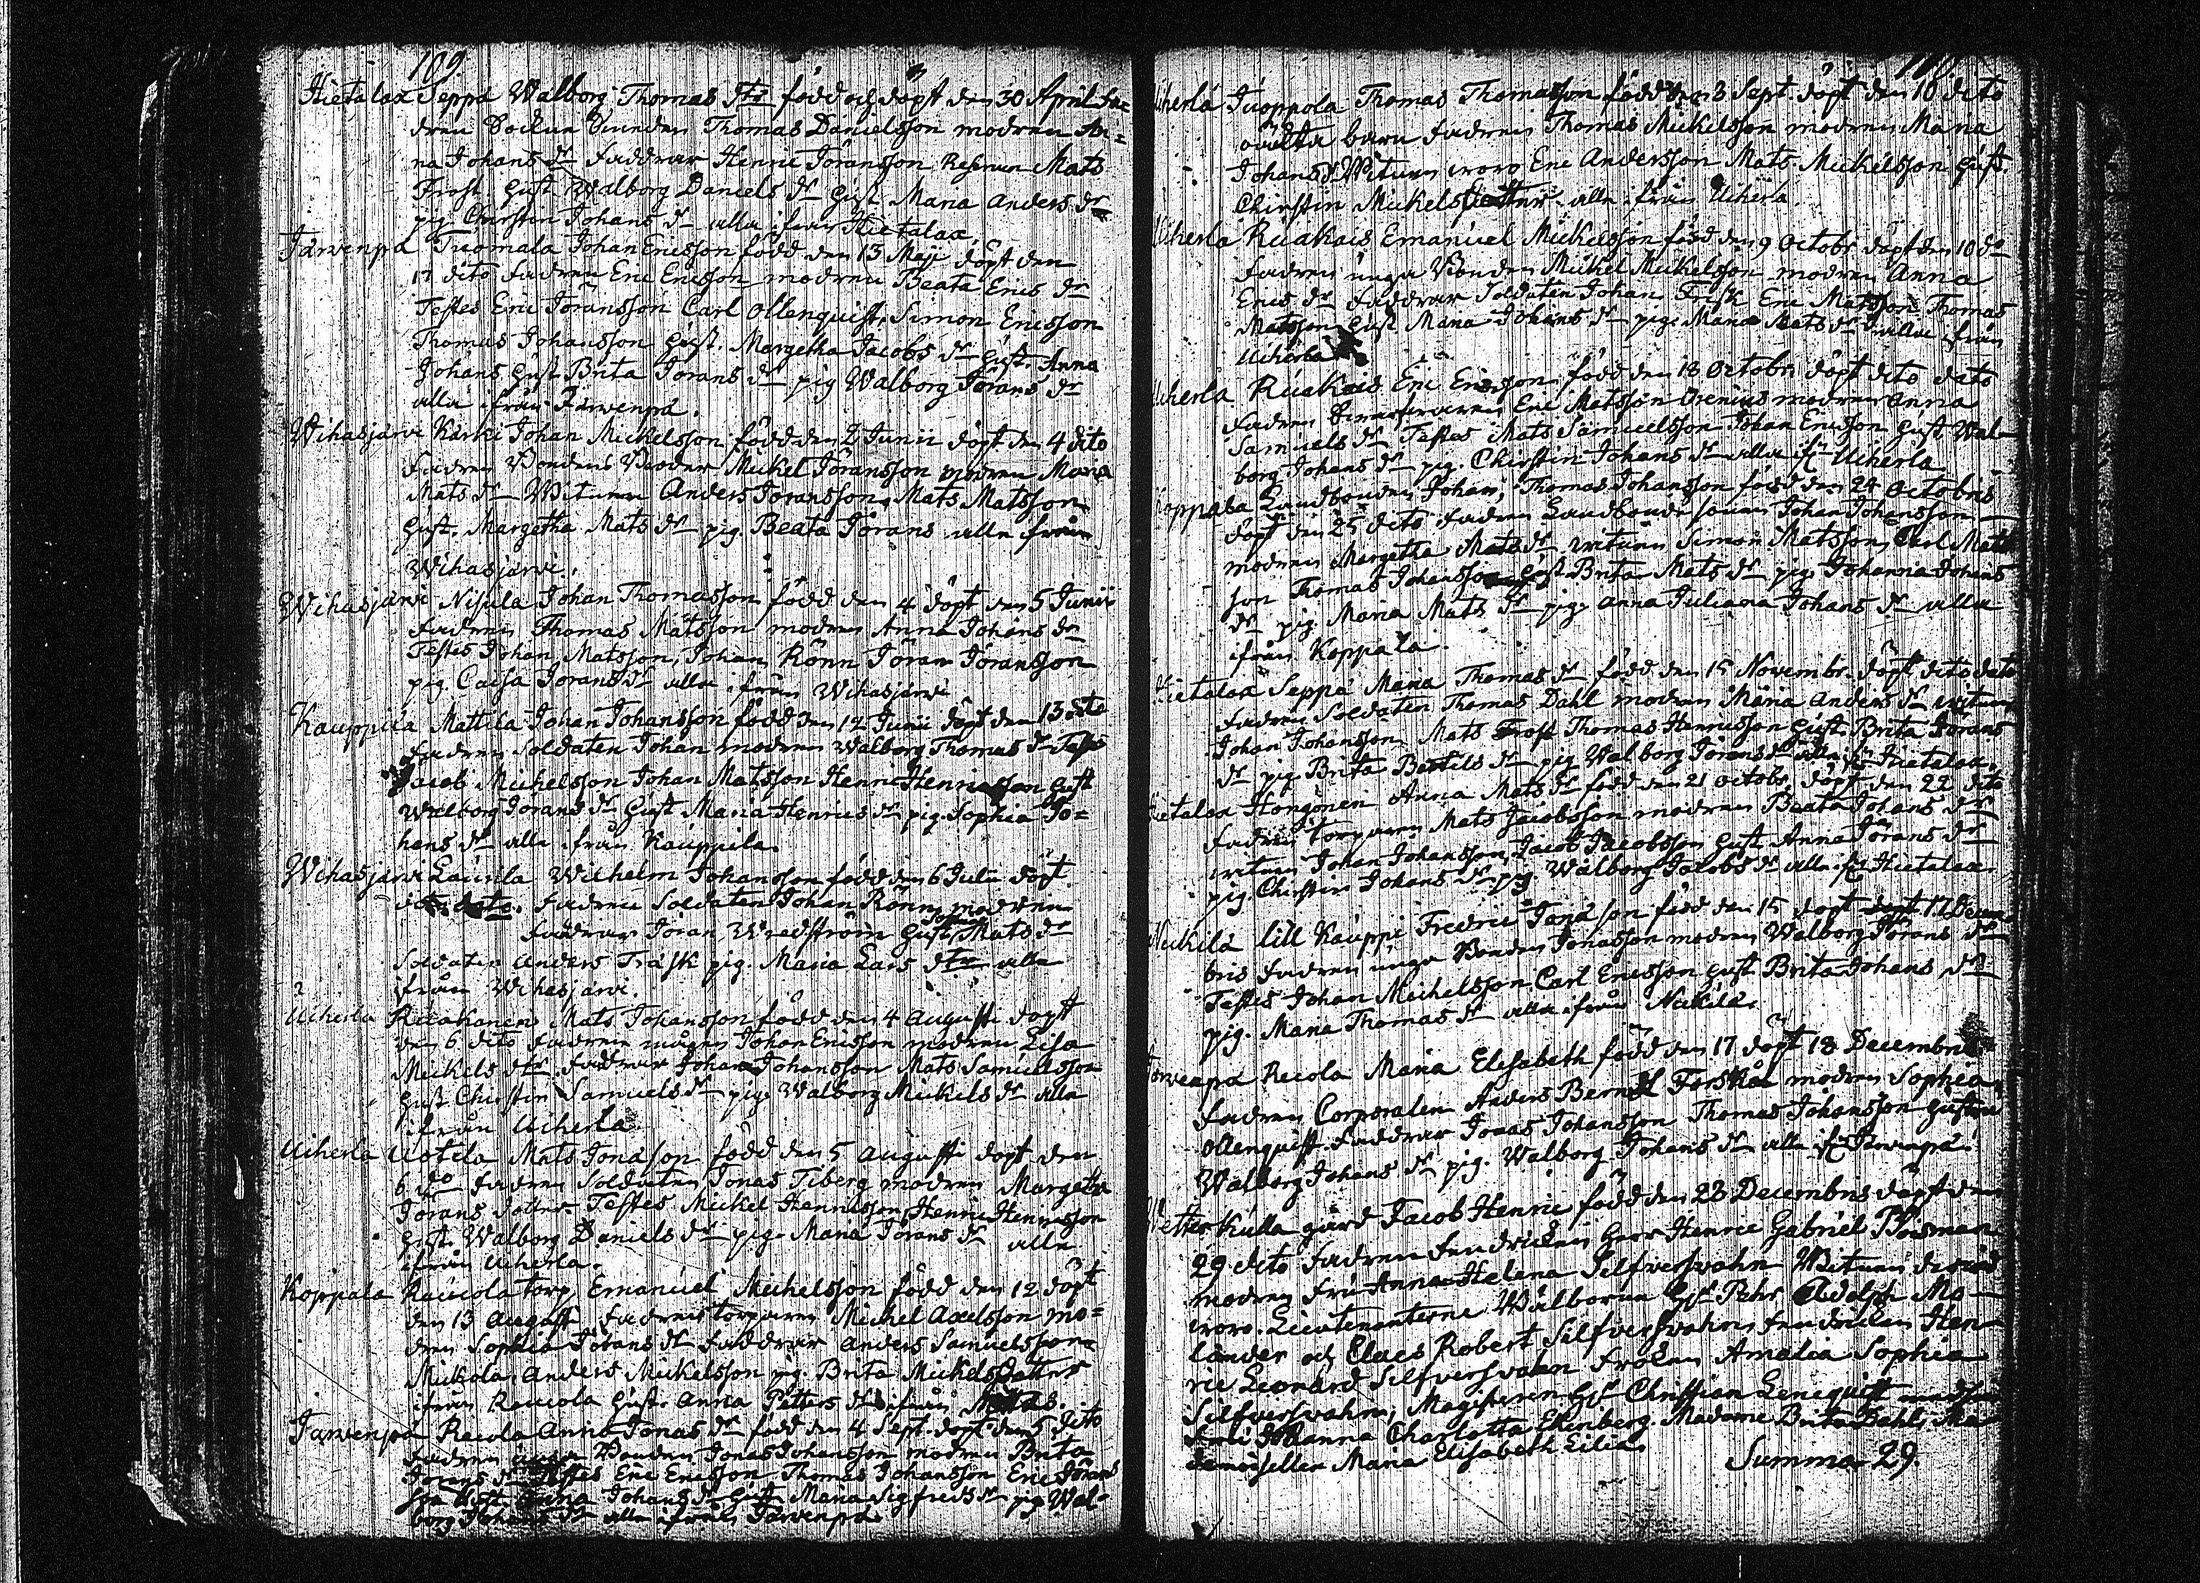 109.
Hietalax Seppä Walborg Thomas dtr född och döpt den 30 April fa-
dren Bonden Thomas Danielsson modren An=
na Johans dr faddrar Henric Jöransson Mats
Frost. gust Walborg Daniels dr gust Maria Anders dr
pig. Chirstin Johans dr alla från Hietalax
Järvenpä Tuomala Johan Ericsson född den 13 Maji döpt den
17 dito fadren Eric Ericsson modren Beata Erics dr
Testes Eric Jöransson Carl Ollenquist, Simon Ericsson
Thomas Johansson gust. Margetha Jacobs dr gust. Anna
Johans gust Brita Jörans dr pig Walborg Jörans dr
alla från Järvenpä.
Wihasjärvi Kärki Johan Mickelsson född den 2 Junii döpt den 4 dito
fadren Bondens Broder Mickel Jöransson modren Maria
Mats dr Witunen Anders Jöransson, Mats Matsson
gust. Margetha Mats dr pig. Beata Jörans alla från
Wihasjärvi.
Wihasjärvi Nisula Johan Thomasson född den 4 döpt den 5 Junii
fadren Thomas Matsson modren Anna Johans dr
Testes Johan Matsson, Johan Rönn Jöran Jöransson
pig. Caisa Jörans dr alla från Wihasjärvi
Kauppila Mattila Johan Johansson född den 12 Junii döpt den 13 dito
fadren Soldaten Johan modren Walborg Thomas dr Test
Jacob Michelsson Johan Matsson Henric Henricsson gust
Walborg Jörans dr gust Maria Henrics dr pig. Sophia Jo=
hans dr alla från Kauppila.
Wihasjärvi Laurila Wilhelm Johansson född den 6 Julii döpt
dito dato. fadren Soldaten Johan Rönn modren
faddrar Jöran Wredström gust Mats dr
Soldaten Anders Träsk pig. Maria Lars dtr alla
från Wihasjärvi.
Uiherla Ruakanen Mats Johansson född den 4 Augusti döpt
den 6 dito fadren Johan Ericsson modren Lisa
Mickels dtr. faddrar Johan Johansson Mats Samuelsson
gust Chirstin Samuels dr pig. Walborg Mickels dr alla
från Uiherla
Uiherla Uotila Mats Jonasson född den 5 Augusti döpt den
6 do fadren Soldaten Jonas Tiberg modren Margetha
Jörans dotter Testes Mickel Henricsson, Henric Henricsson
gust. Walborg Daniels dr pig. Maria Jörans dr alla
från Uiherla.
Koppala Raicola torp, Emanuel Michelsson född den 12 döpt
den 13 Augusti fadren torparen Mickel Axelsson mo=
dren Sophia Jörans dr faddrar Anders Samuelsson
Anders Mickelsson pig. Brita Mickels dotter
från Raicola gust. Anna Petters dr från
Järvenpä Recola Anna Jonas dr född den 4 Sept. döpt den 5 dito
fadren unga Bonden Jonas Johansson modren Brita
Jörans dr Testes Eric Ericsson Thomas Johansson Eric Jörans
son gust. Anna Johans dr gust. Maria Sigfreds dr pig. Wal-
borg Johans dr alla från Järvenpä.
Uiherla Tuoppola Thomas Thomasson född den 8 Sept. döpt den 10 dito
oäkta barn fadren Thomas Mickelsson modren Maria
Johans dr Witunen woro Eric Andersson Mats Mickelsson gust.
Chirstin Mickels dotter alla från Uiherla.
Uiherla Ruakais Emanuel Mickelsson född den 9 Octobr. döpt den 10 do
fadren unga Bonden Mickel Mickelsson modren Anna
Erics dr faddrar Soldaten Johan Frisk Eric Matsson Thomas
Matsson gust Maria Johans dr pig. Maria Mats dr alla från
Uiherla
Uiherla Ruakais Eric Ericsson född den 18 Octobr. döpt dito dato
fadren Eric Matsson modren Anna
Samuels dr Testes Mats Samuelsson Johan Ericsson gust Wal-
borg Johans dr pig. Chirstin Johans dr alla fr. Uiherla
Koppala Landbonden Johan, Thomas Johansson född den 24 Octobris
döpt den 25 dito fadren Landbonde sonen Johan Johansson
modren Margetha Mats dr witunen Simon Matsson, Carl Mats
son Thomas Johansson gust Brita Mats dr pig. Johanna Johans
dr pig. Maria Mats dr pig. Anna Juliana Johans dr alla
från Koppala.
Hietalax Seppä Maria Thomas dr född den 15 Novembr. döpt dito dato
fadren Soldaten Thomas Dahl modren Maria Anders dr witunen
Johan Johansson Mats Frost Thomas Henricsson gust Brita Jörans
dr pig. Brita Bertils dr pig Walborg Jörans dr alla fr. Hietalax.
Hietalax Hongonen Anna Mats dr född den 21 Octobr. döpt den 22 dito
fadren torparen Mats Jacobsson modren Beata Johans dr
witunen Johan Johansson, Jacob Jacobsson gust Anna Jörans dr
pig. Chirstin Johans dr pig. Walborg Jacobs dr alla fr. Hietalax
Nuikilä lill Kauppi Fredric Jonasson född den 15 döpt 17 Decem
bris fadren unga Bonden Jonasson modren Walborg Jörans dr
Testes Johan Michelsson Carl Ericsson gust Brita Johans dr
pig. Maria Thomas dr alla från Nuikilä.
Järvenpä Recola Maria Elisabeth född den 17 döpt 18 Decembris
fadren Corporalen Anders Berndt Forskåhl modren Sophia
Ollenquist. faddrar Jonas Johansson Thomas Johansson gustru
Walborg Johans dr pig. Walborg Johans dr alla fr. Järvenpä.
Wetterkulla gård Jacob Henric född den 28 Decembris döpt den
29 dito fadren fendricken herr Henric Gabriel Boisman
modren fru Anna Helena Silfverswahn Witunen
woro. Lieutenanterne Hr. Pehr Adolph Mo-
lander och Claes Robert Silfverswahn, fendricken Hen-
ric Leonard Silfverswahn fröken Amalia Sophia
Silfverswahn, Magisteren Hr. Christian Lenequist
fru Johanna Charlotta Ehrnberg. Madame Brita Dahl, Ma
demoisellen Maria Elisabeth Eilia.
Summa 29.